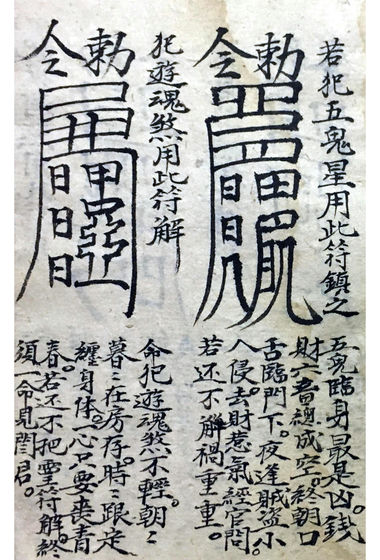 若犯五鬼星用此符鎮之
勅令
五鬼臨身最是凶。錢
財六畜總成空。終朝口
舌臨門下。夜逢賊盜小
人侵。去財惹氣經官問
若还不解禍重重。
犯遊魂煞用此符解
勅令
日日日
命犯遊魂煞不輕。朝〻
暮〻在房存。時〻跟定
纏身体。一心只要丧青
春。若还不把灵符解。終
須一命見閻君。